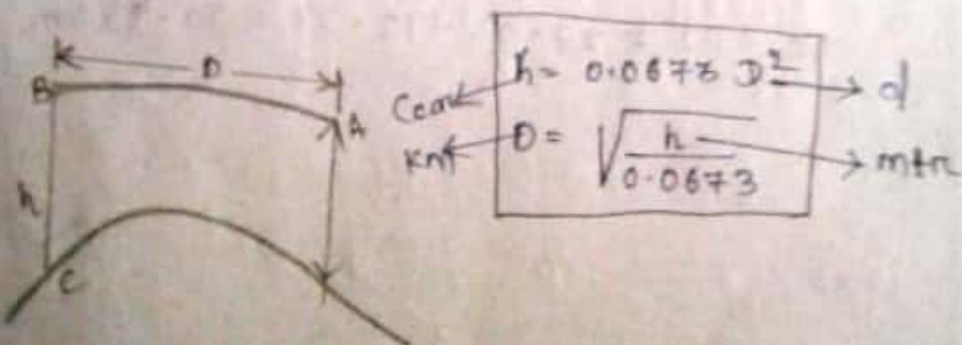 D
B
A
h
C
h = 0.0673 D² → d
km ← D = √(h / 0.0673) → mtr